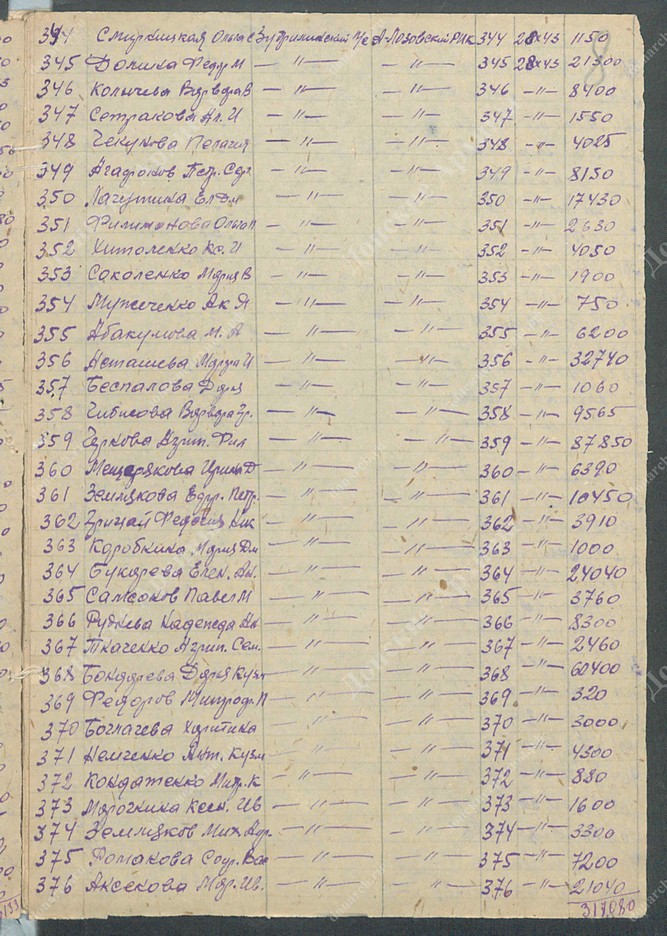 8
344 Смирницкая Ольга А-Лозовский РИК 344 28 х 43 1150
345 Домина Федр М —"— —"— 345 28 х 43 21300
346 Колычева Варвара В —"— —"— 346 —"— 8400
347 Сетракова Ал. И —"— —"— 347 —"— 1550
348 Чекунова Пелагия —"— —"— 348 —"— 4025
349 Агафонов Петр —"— —"— 349 —"— 8150
350 Лагутина Ел —"— —"— 350 —"— 17430
351 Филимонова Ольга П —"— —"— 351 —"— 2630
352 Хитоленко И —"— —"— 352 —"— 4050
353 Саколенко Мария В —"— —"— 353 —"— 1900
354 Ак Я —"— —"— 354 —"— 750
355 Абакумова М. А —"— —"— 355 —"— 6200
356 Асташева Мария И —"— —"— 356 —"— 32740
357 Беспалова Дария —"— —"— 357 —"— 1060
358 Чибисова Варвара Гр. —"— —"— 358 —"— 9565
359 Чуркова Агрип. Фил —"— —"— 359 —"— 87850
360 Мещерякова Ирина Д —"— —"— 360 —"— 6390
361 Землякова Евдр. Петр. —"— —"— 361 —"— 10450
362 Федосия Ник —"— —"— 362 —"— 3910
363 Коробкина Мария Дм —"— —"— 363 —"— 1000
364 Букарева Елен. Ан. —"— —"— 364 —"— 24040
365 Самсонов Павел М —"— —"— 365 —"— 3760
366 Руднева Надежда —"— —"— 366 —"— 8300
367 Ткаченко Агрип. Сем. —"— —"— 367 —"— 2460
368 Бондарева Дария Кузм —"— —"— 368 —"— 60400
369 Федоров Митроф. П —"— —"— 369 —"— 320
370 Богачева Харитина —"— —"— 370 —"— 3000
371 Немченко Ант. Кузм —"— —"— 371 —"— 4300
372 Кондатенко Митр. К —"— —"— 372 —"— 880
373 Марочкина Ксен. Ив —"— —"— 373 —"— 1600
374 Земляков Мих. —"— —"— 374 —"— 3300
375 Ломакова Вас —"— —"— 375 —"— 7200
376 Аксенова Мар. Ив. —"— —"— 376 —"— 21040
317080